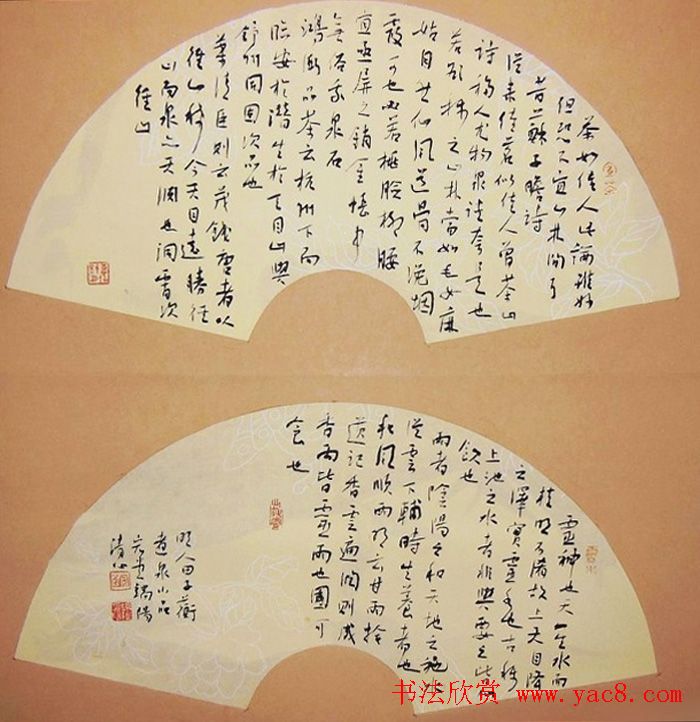 茶如佳人此論雖妙
但恐不宜山林間耳
昔蘇子瞻詩
從來佳茗似佳人曾茶山
詩移人尤物衆談夸是也
若欲稱之山林當如毛女麻
姑自然仙風道骨不浼烟
霞可也必若桃臉柳腰
宜亟屏之銷金帳中
無俗我泉石
鴻漸品茶云杭州下而
臨安於潛生於天目山與
舒州同固次品也
葉清臣則云茂錢唐者以
徑山稀今天目遠勝徑
山而泉亦天淵也洞霄次
徑山
靈神也天一生水而
精明不淆故上天自降
之澤實靈水也古稱
上池之水者非與要之皆仙
飲也
雨者陰陽之和天地之施水
從雲下輔時生養者也
和風順雨明云甘雨拾
遺記香雲遍潤則成
香雨皆靈雨也固可
食也
明人田子衡
煮泉小品
端陽
书法欣赏 www.yac8.com